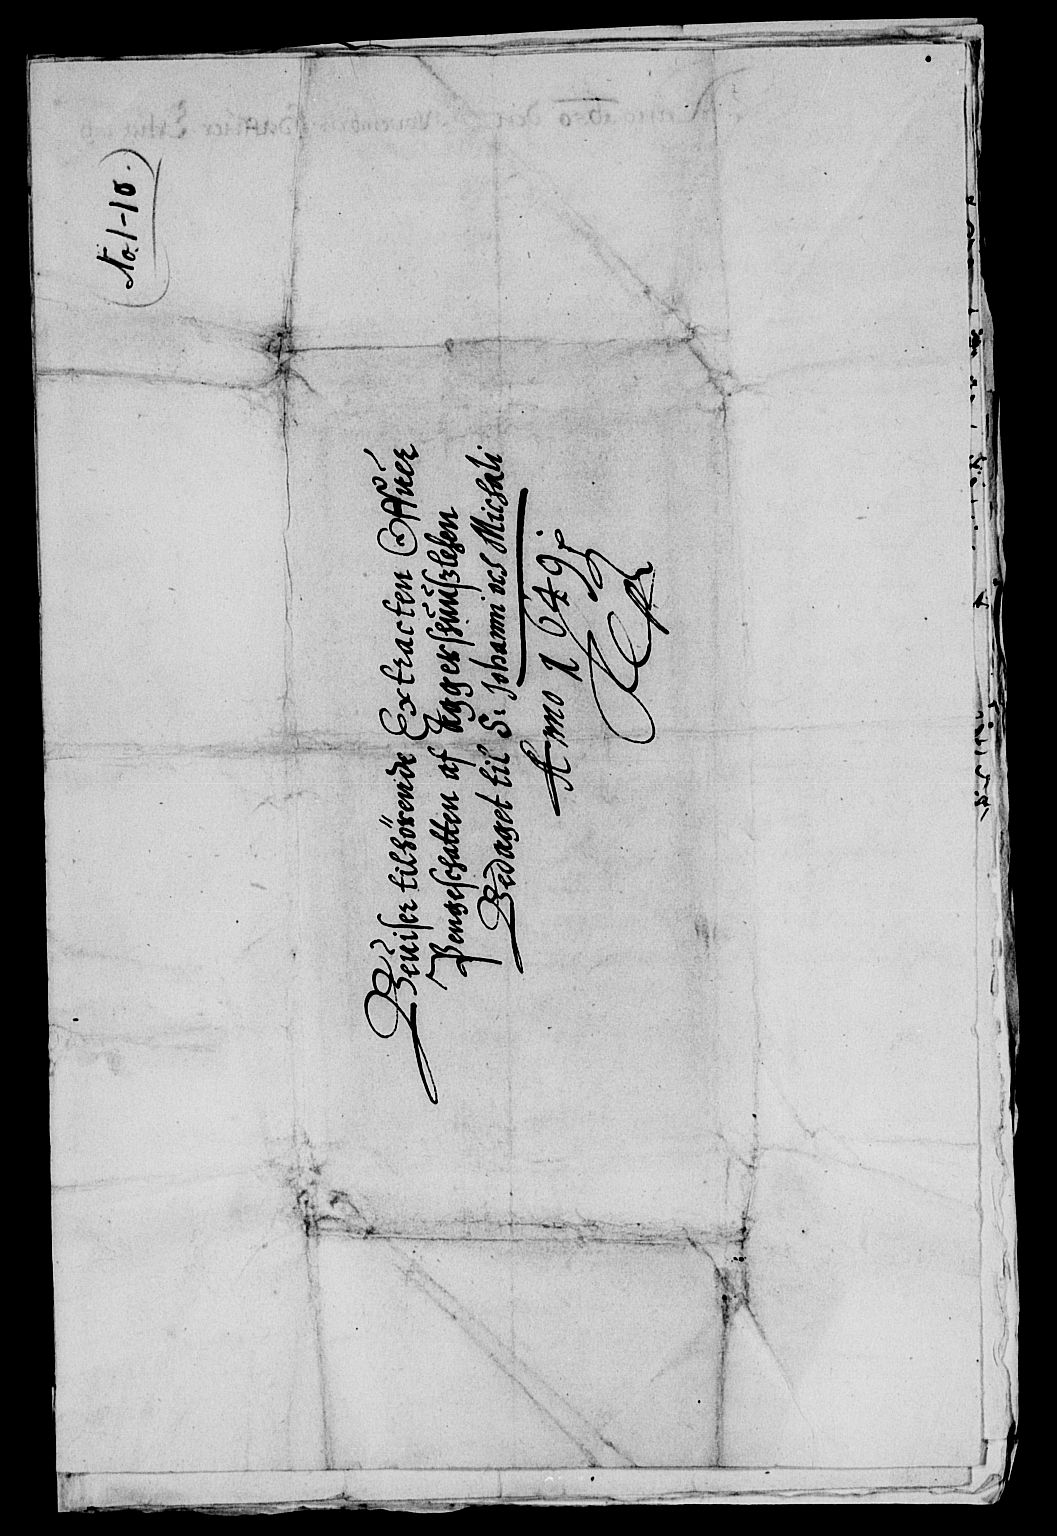 No. 1-10.
Beuiser tilhörende Extracten Offuer
Pengeschatten af Aggershuußlehen
Bedaget til S: Johanni och Michali
Anno 1649